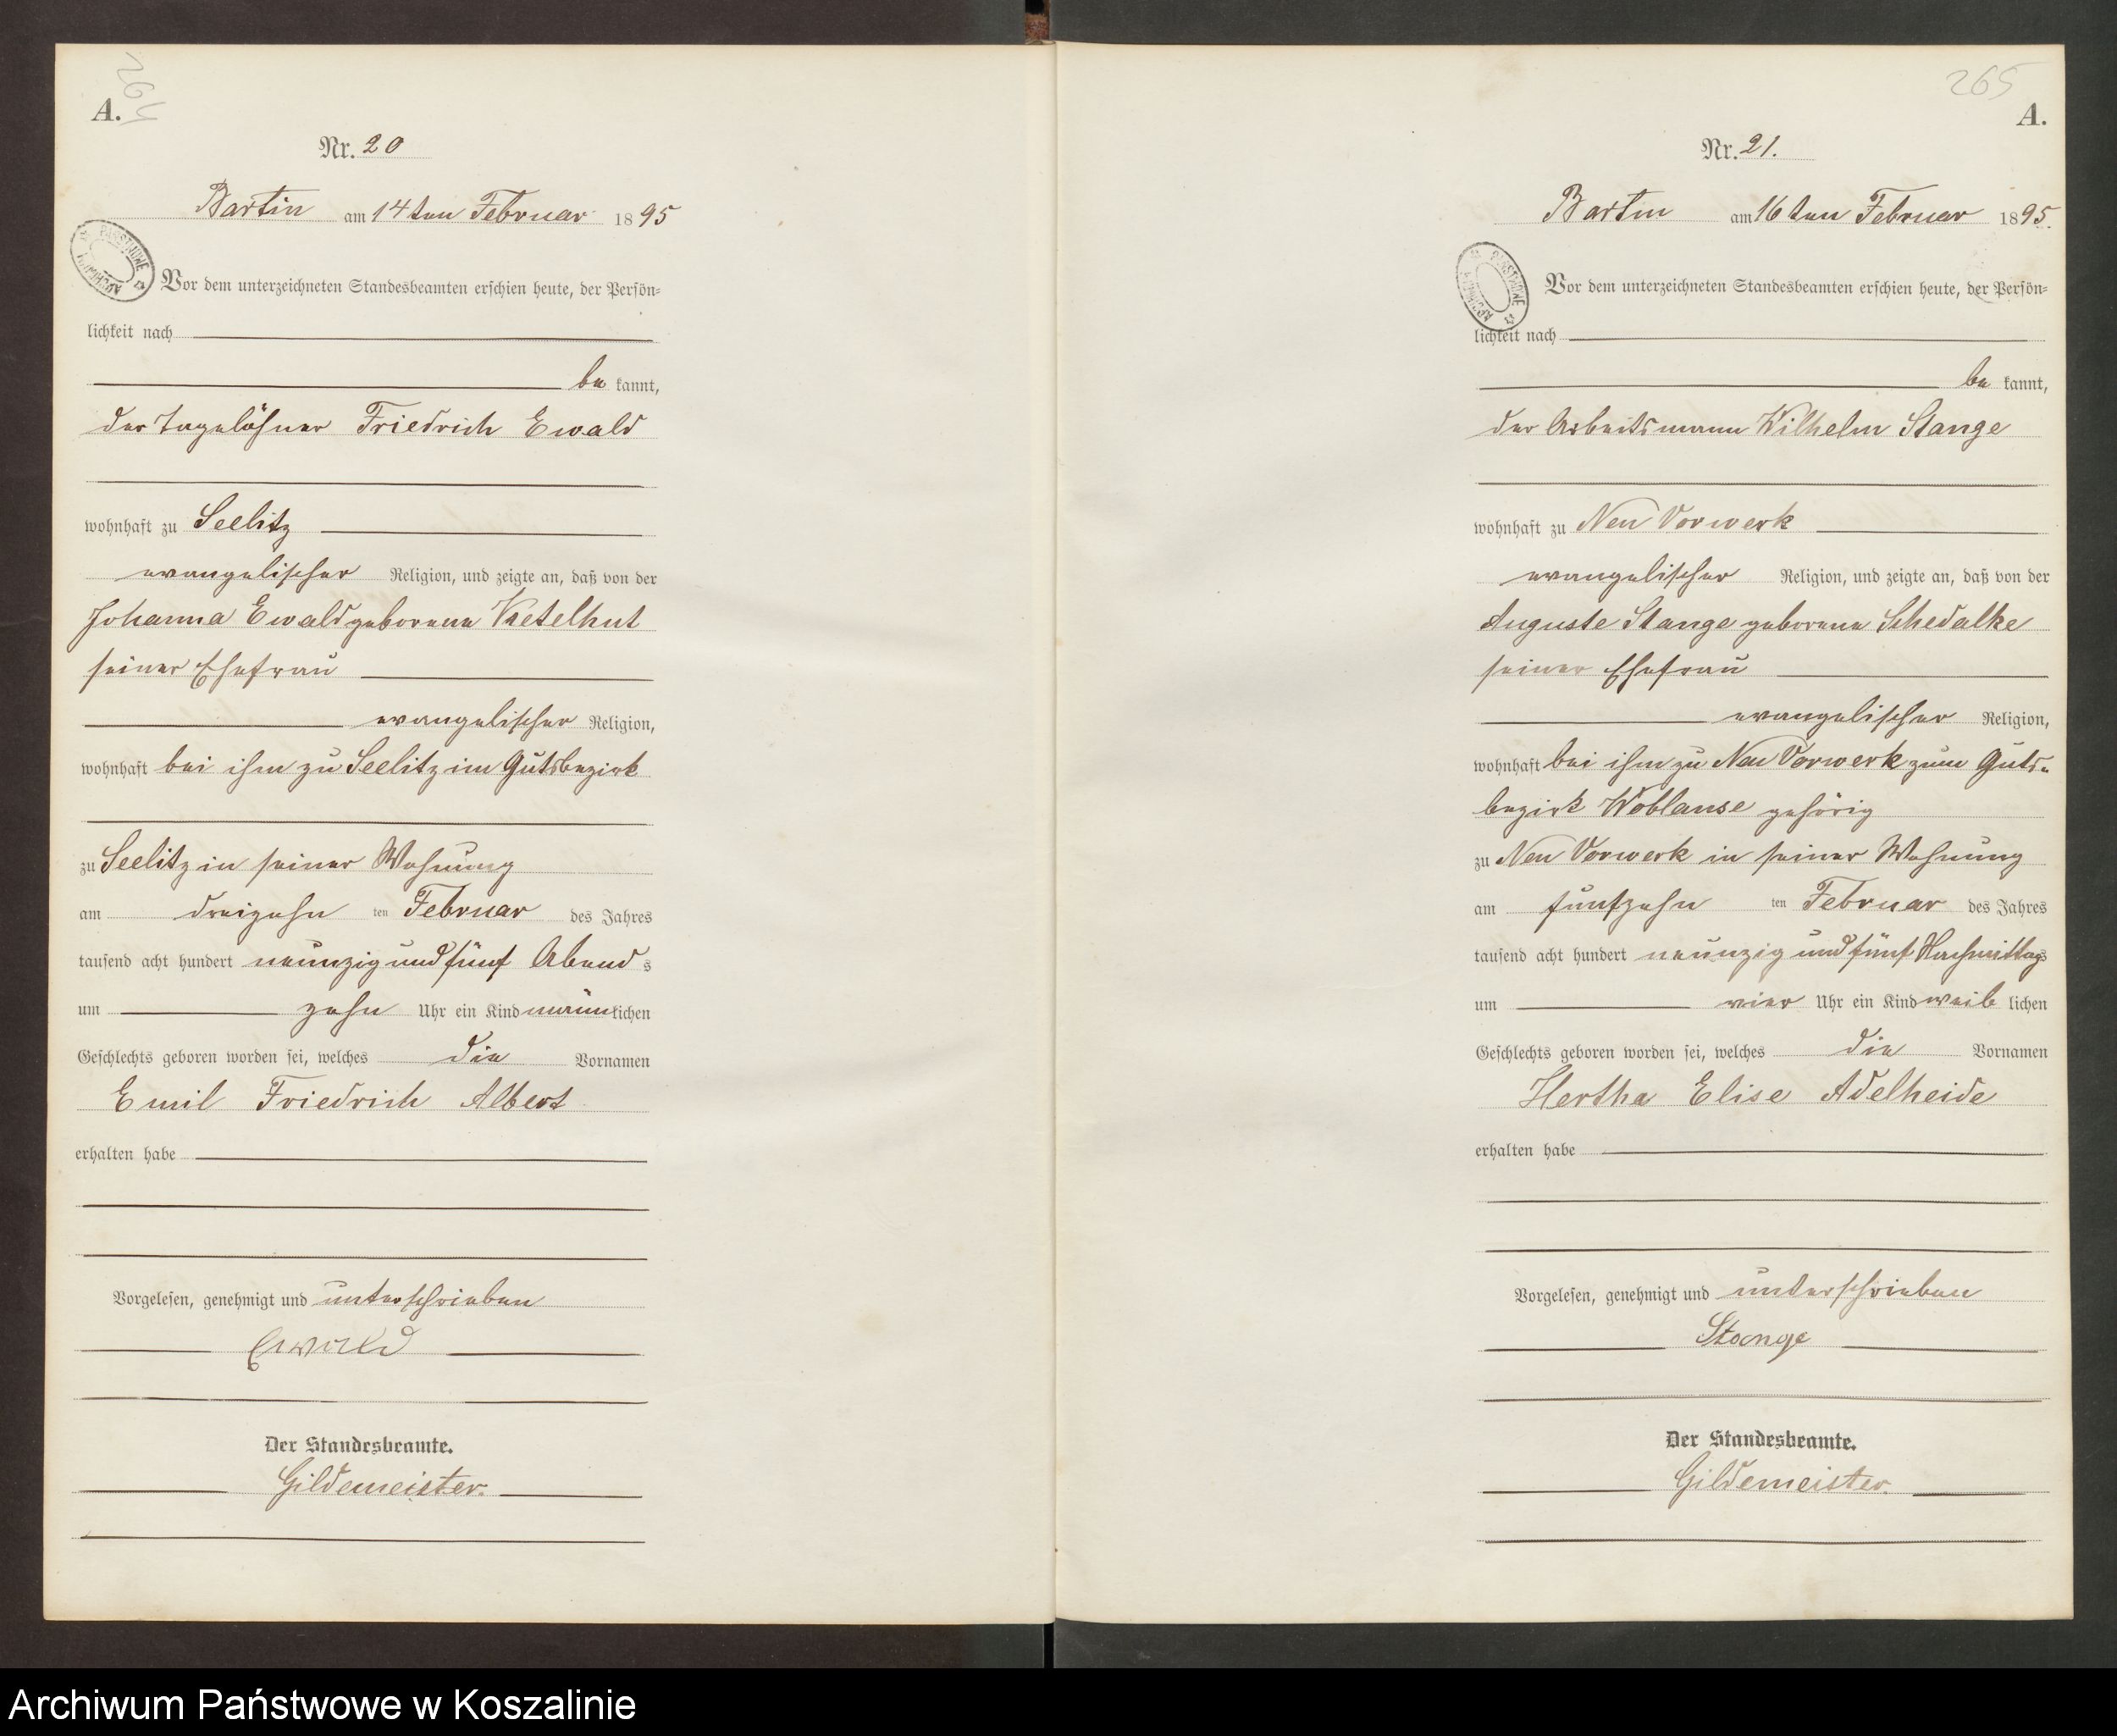 264
A.
Nr. 20
Bartin am 14ten Februar 1895
ARCHIWUM PAŃSTWOWE
Vor dem unterzeichneten Standesbeamten erschien heute, der Persön-
lichkeit nach
be kannt,
der Tagelöhner Friedrich Ewald
wohnhaft zu Seelitz
evangelischer Religion, und zeigte an, daß von der
Johanna Ewald geborene Ketelhut
seiner Ehefrau
evangelischer Religion,
wohnhaft bei ihm zu Seelitz im Gutsbezirk
zu Seelitz in seiner Wohnung
am dreizehn ten Februar des Jahres
tausend acht hundert neunzig und fünf Abend s
um zehn Uhr ein Kind männlichen
Geschlechts geboren worden sei, welches die Vornamen
Emil Friedrich Albert
erhalten habe
Vorgelesen, genehmigt und unterschrieben
Ewald
Der Standesbeamte.
Gildemeister.
265
A.
Nr. 21.
Bartin am 16ten Februar 1895.
ARCHIWUM PAŃSTWOWE
Vor dem unterzeichneten Standesbeamten erschien heute, der Persön-
lichkeit nach
be kannt,
der Arbeitsmann Wilhelm Stange
wohnhaft zu Neu Vorwerk
evangelischer Religion, und zeigte an, daß von der
Auguste Stange geborene Schedalke
seiner Ehefrau
evangelischer Religion,
wohnhaft bei ihm zu Neu Vorwerk zum Guts-
bezirk Woblanse gehörig
zu Neu Vorwerk in seiner Wohnung
am fünfzehn ten Februar des Jahres
tausend acht hundert neunzig und fünf Nachmittags
um vier Uhr ein Kind weib lichen
Geschlechts geboren worden sei, welches die Vornamen
Hertha Elise Adelheide
erhalten habe
Vorgelesen, genehmigt und unterschrieben
Stange
Der Standesbeamte.
Gildemeister.
Archiwum Państwowe w Koszalinie